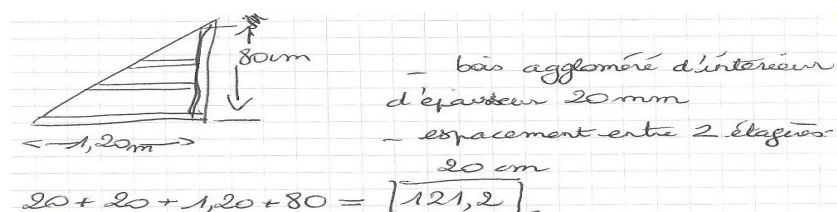 80cm
- bois aggloméré d'intérieur
d'épaisseur 20mm
- espacement entre 2 étagères
20 cm
1,20m
20 + 20 + 1,20 + 80 = 121,2